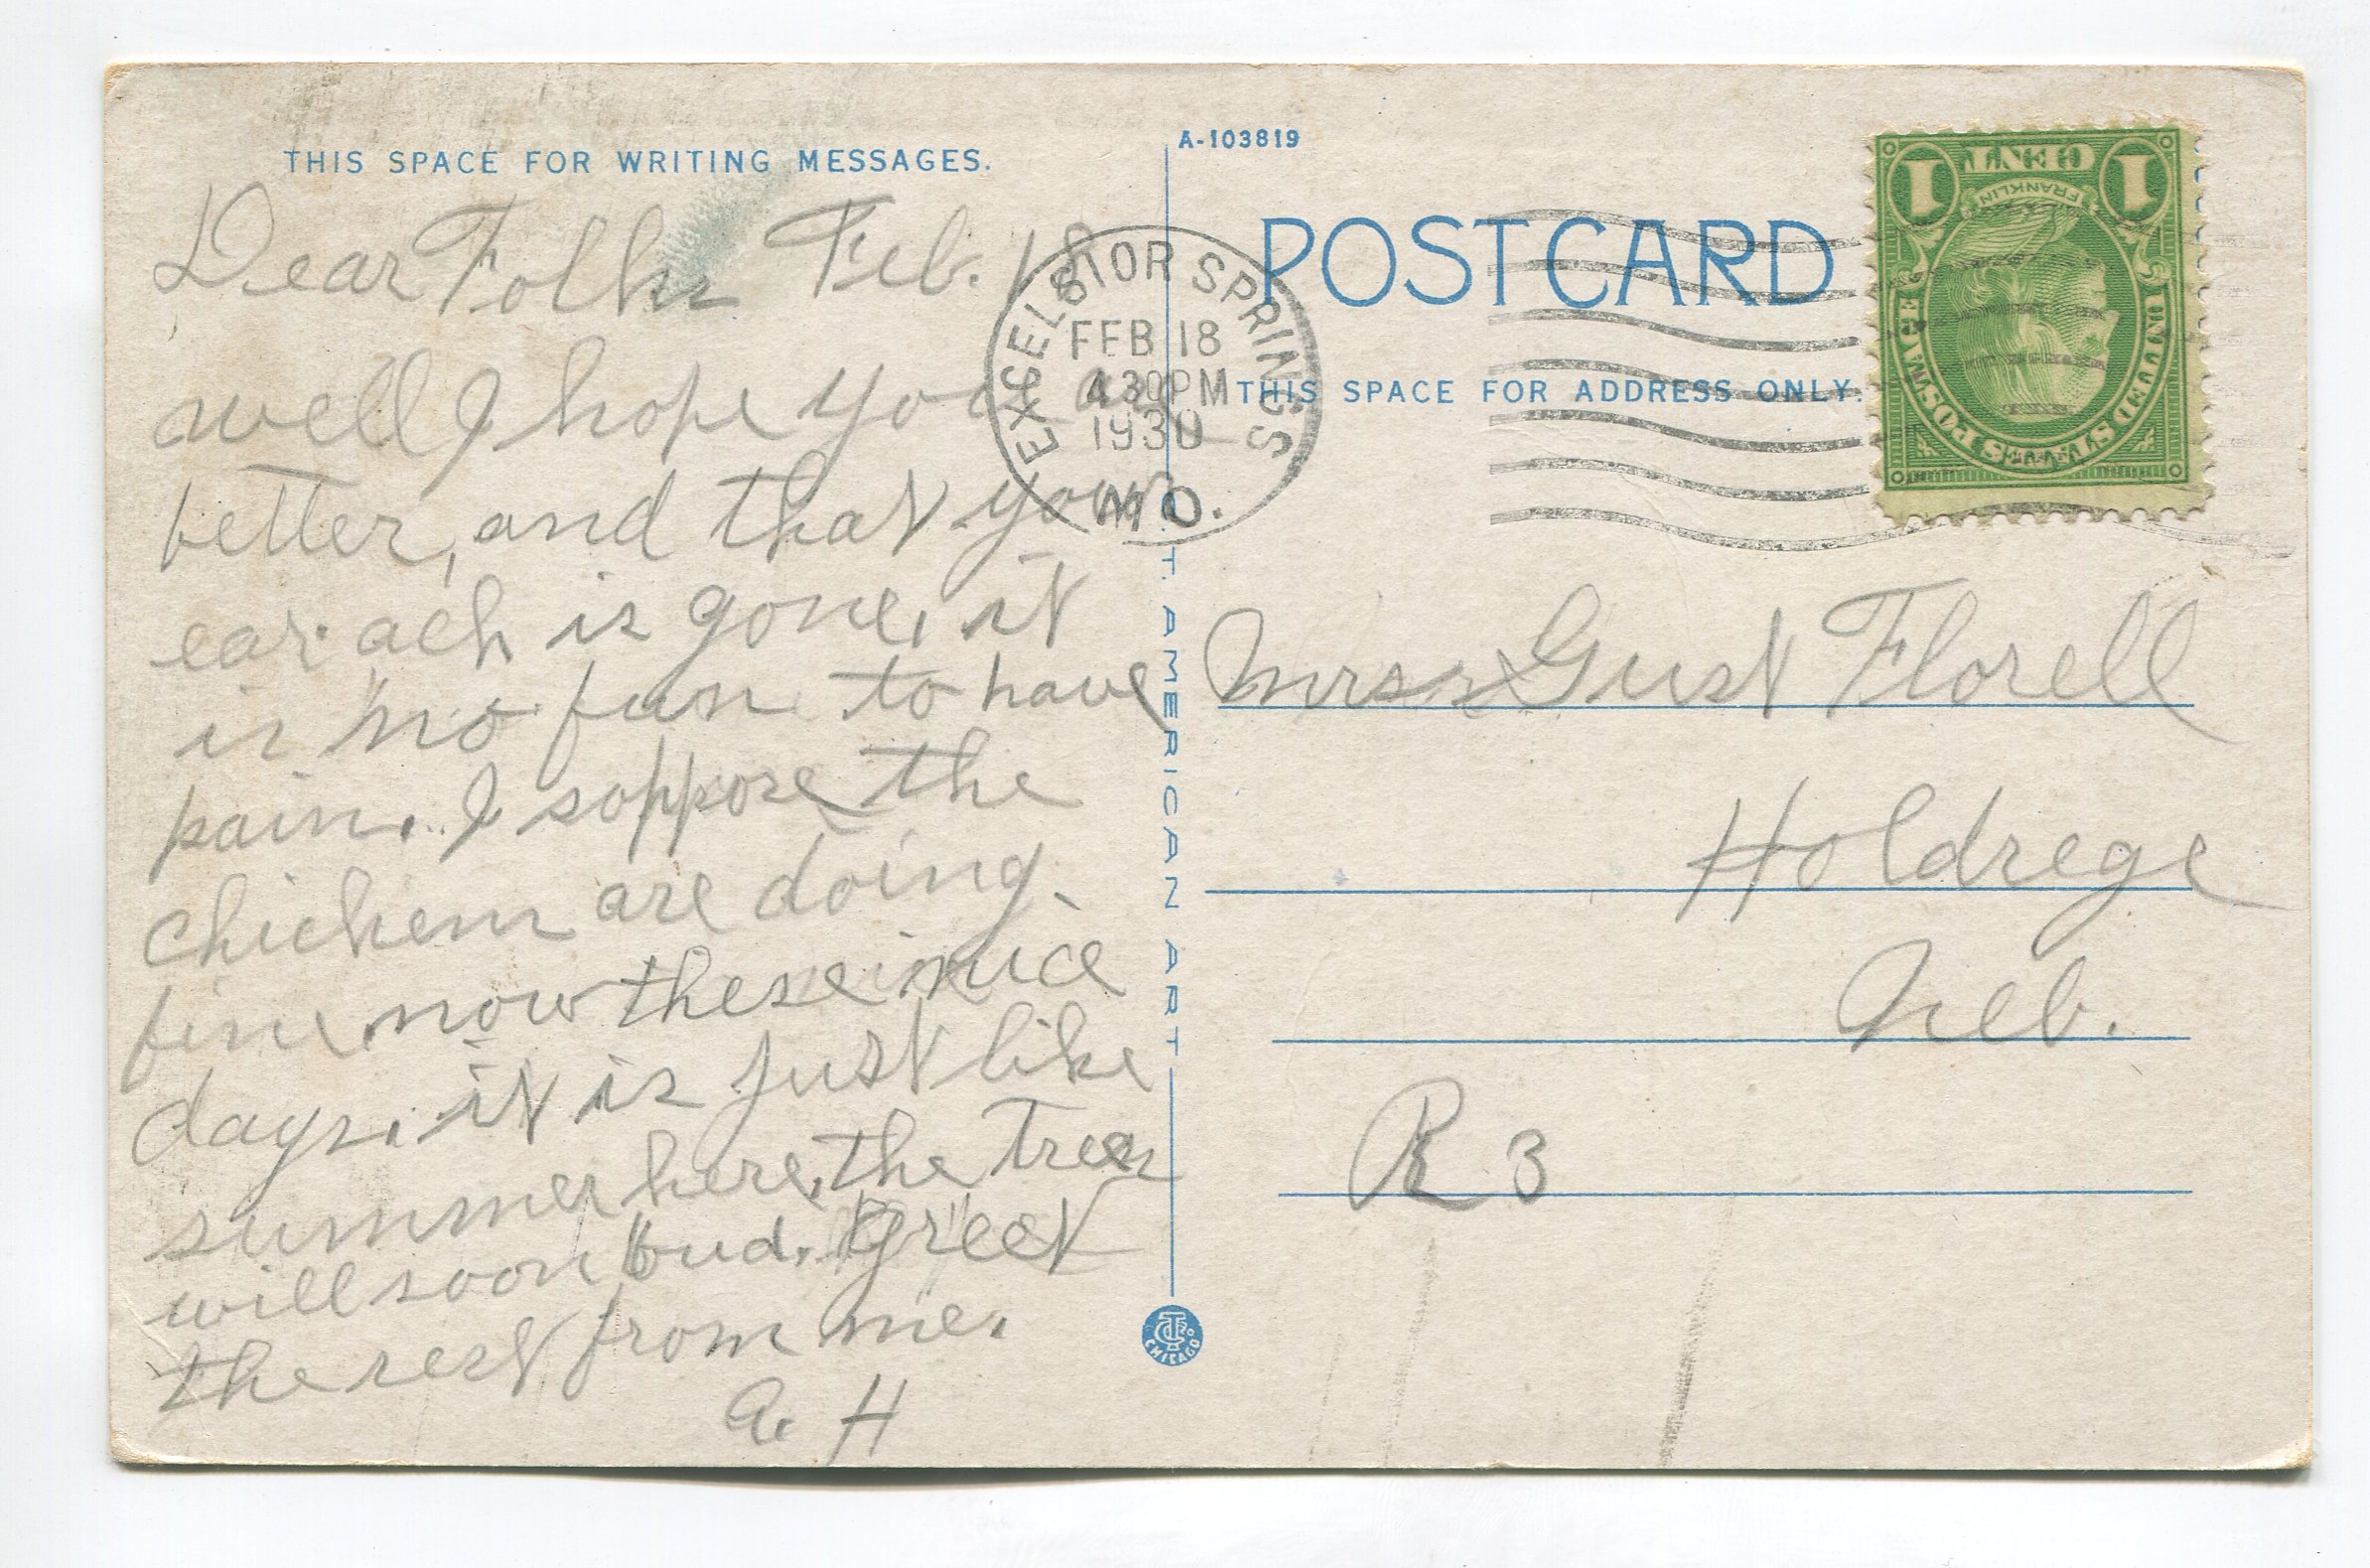 THIS SPACE FOR WRITING MESSAGES.
Dear Folks Feb. 18
well I hope you are
better, and that your
ear ach is gone, it
is no fun to have
pain. I soppose the
chickens are doing
fine now these nice
days. it is just like
summer here, the trees
will soon bud. Greet
the rest from me.
A. H
A-103819
POST CARD
THIS SPACE FOR ADDRESS ONLY.
EXCELSIOR SPRINGS
FEB 18
4 30 PM
1930
MO.
1 CENT 1
FRANKLIN
UNITED STATES POSTAGE
C. T. AMERICAN ART
Mrs Gust Florell
Holdrege
Neb.
R 3
CHICAGO